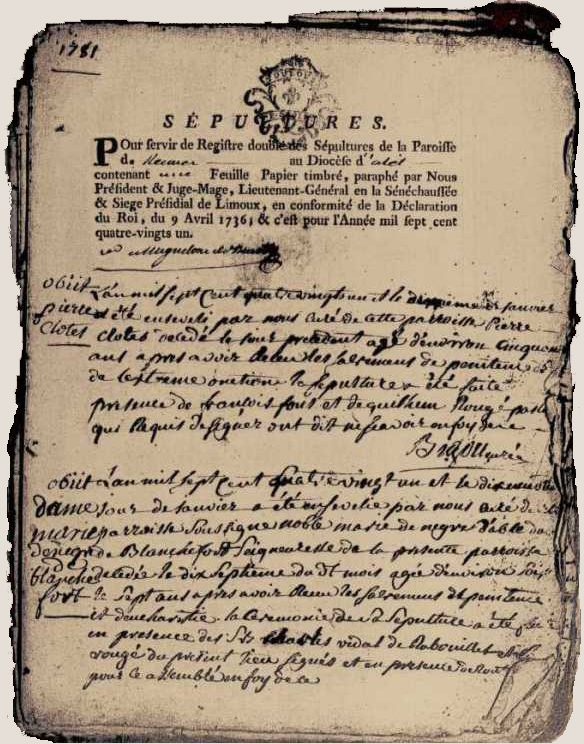 1781
SÉPULTURES.
POur servir de Registre double des Sépultures de la Paroisse
de Rennes au Diocèse d'alet
contenant une Feuille Papier timbré, paraphé par Nous
Président & Juge-Mage, Lieutenant-Général en la Sénéchaussée
& Siege Présidial de Limoux, en conformité de la Déclaration
du Roi, du 9 Avril 1736; & c'est pour l'Année mil sept cent
quatre-vingts un.
obiit L'an mil sept Cent quatre vingt un et le dixieme de janvier
pierre a été enseveli par nous curé de cette parroisse Pierre
Clotes clotes décédé le jour precedent agé d'environ cinquante
ans apres avoir Receu les sacremens de penitence
de l'extreme onction la sepulture a été faite
presence de françois fons et de guilhem Rougé
qui Requis de signer ont dit ne scavoir en foy de ce
Bigou curé
obiit L'an mil sept Cent quatre vingt un et le dix
dame jour de janvier a été ensevelie par nous curé de
marie parroisse soussigné noble marie de negre Dable da
denegre de Blanchefort Seigneuresse de la presente parroisse
blanche decedée le dix septieme du dt mois agée d'environ soix
fort te sept ans apres avoir Receu les sacremens de penitence
et d'eucharistie la Ceremonie de sa Sepulture a été faite
en presence des Srs charles vidal de
rougé du present lieu signés et en presence de tout
pour ce assemblé en foy de ce